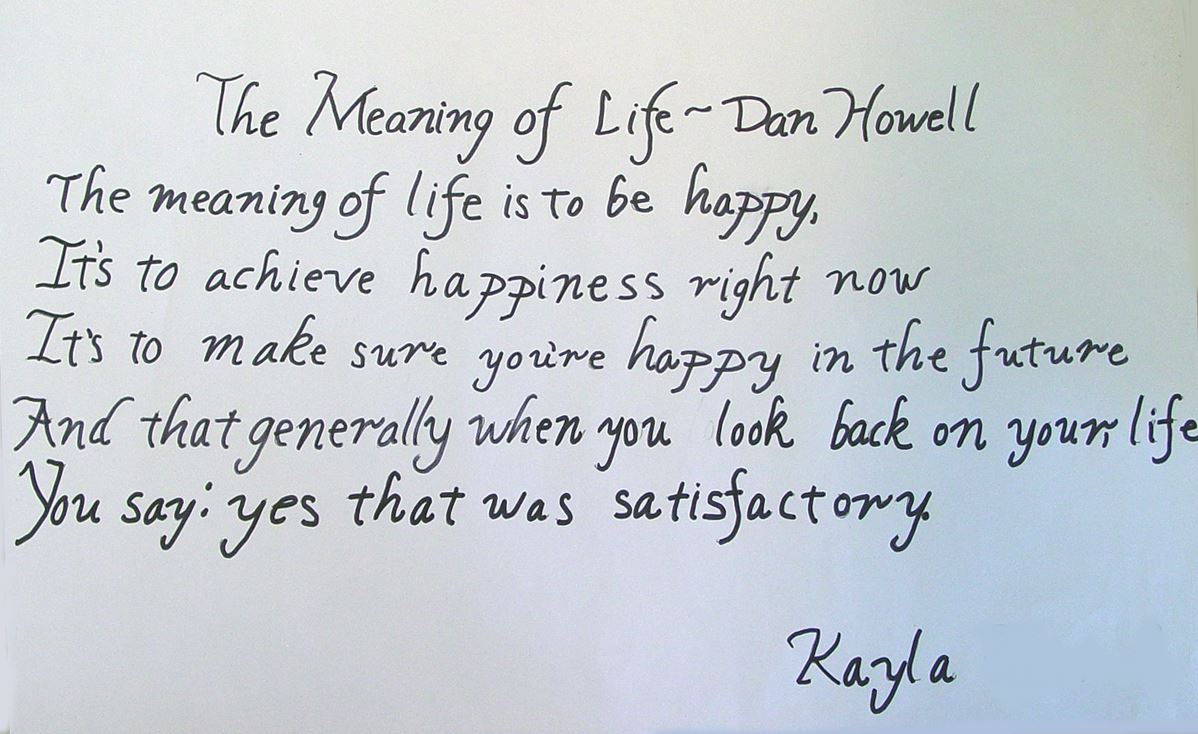 The Meaning of Life ~ Dan Howell
The meaning of life is to be happy,
It's to achieve happiness right now
It's to make sure you're happy in the future
And that generally when you look back on your, life
You say: yes that was satisfactory.
Kayla